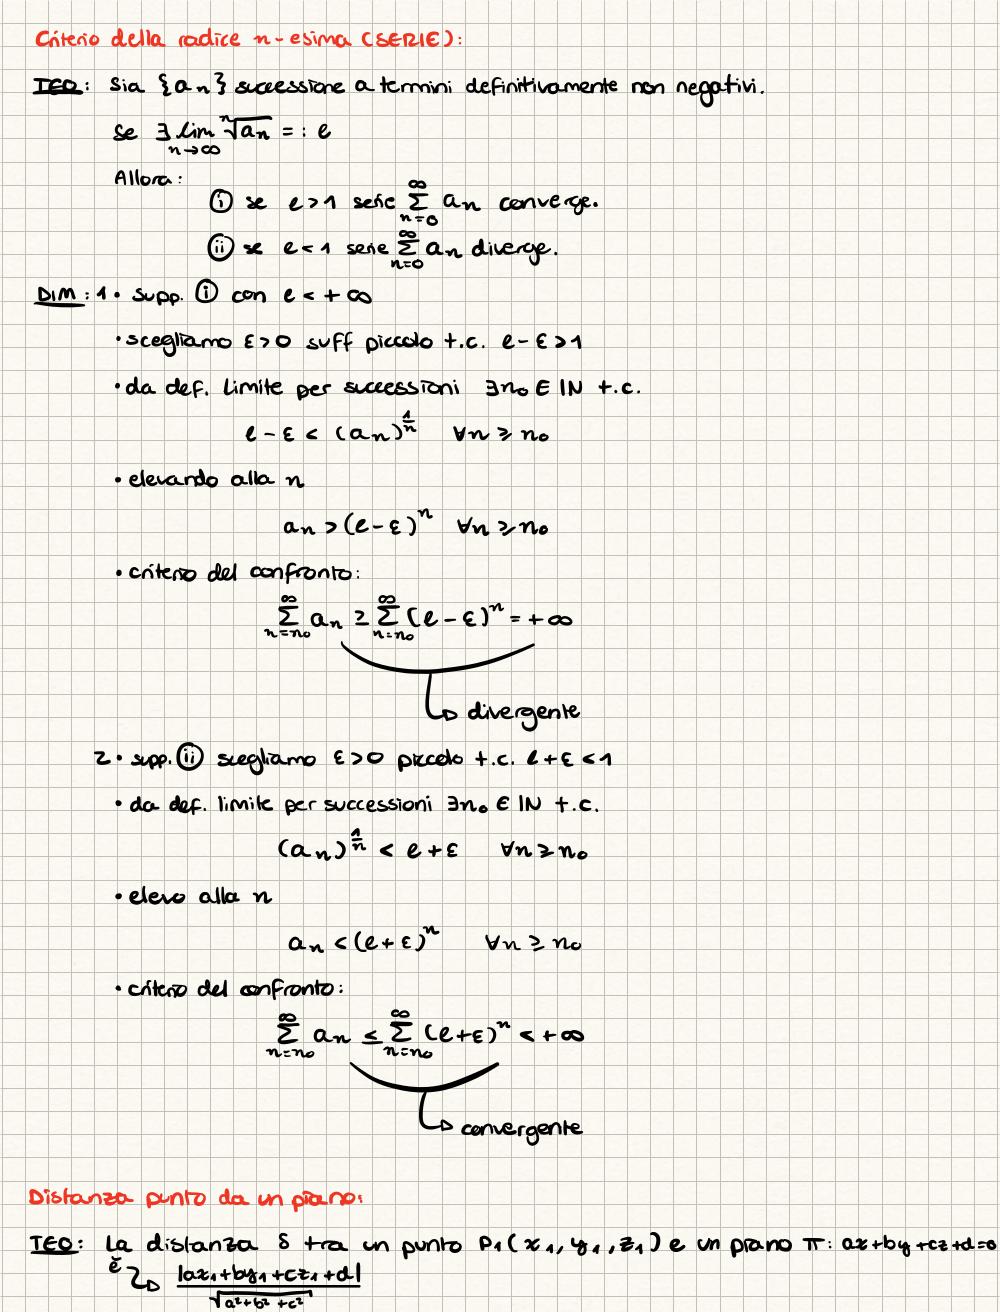 Criterio della radice n-esima (SERIE):
TEO: Sia {an} successione a termini definitivamente non negativi.
se ∃ lim n→∞ ⁿ√an =: ℓ
Allora:
(i) se ℓ>1 serie ∑ n=0 ∞ an converge.
(ii) se ℓ<1 serie ∑ n=0 ∞ an diverge.
DIM: 1• supp. (i) con ℓ<+∞
•scegliamo ε>0 suff piccolo t.c. ℓ-ε>1
•da def. limite per successioni ∃n₀ ∈ IN t.c.
ℓ-ε < (an)^(1/n) ∀n ≥ n₀
•elevando alla n
an > (ℓ-ε)^n ∀n ≥ n₀
•criterio del confronto:
∑ n=n₀ ∞ an ≥ ∑ n=n₀ ∞ (ℓ-ε)^n = +∞
divergente
2• supp. (ii) scegliamo ε>0 piccolo t.c. ℓ+ε<1
•da def. limite per successioni ∃n₀ ∈ IN t.c.
(an)^(1/n) < ℓ+ε ∀n ≥ n₀
•elevo alla n
an < (ℓ+ε)^n ∀n ≥ n₀
•criterio del confronto:
∑ n=n₀ ∞ an ≤ ∑ n=n₀ ∞ (ℓ+ε)^n < +∞
convergente
Distanza punto da un piano:
TEO: La distanza δ tra un punto P₁(x₁,y₁,z₁) e un piano π: ax+by+cz+d=0
è |ax₁+by₁+cz₁+d| / √(a²+b²+c²)